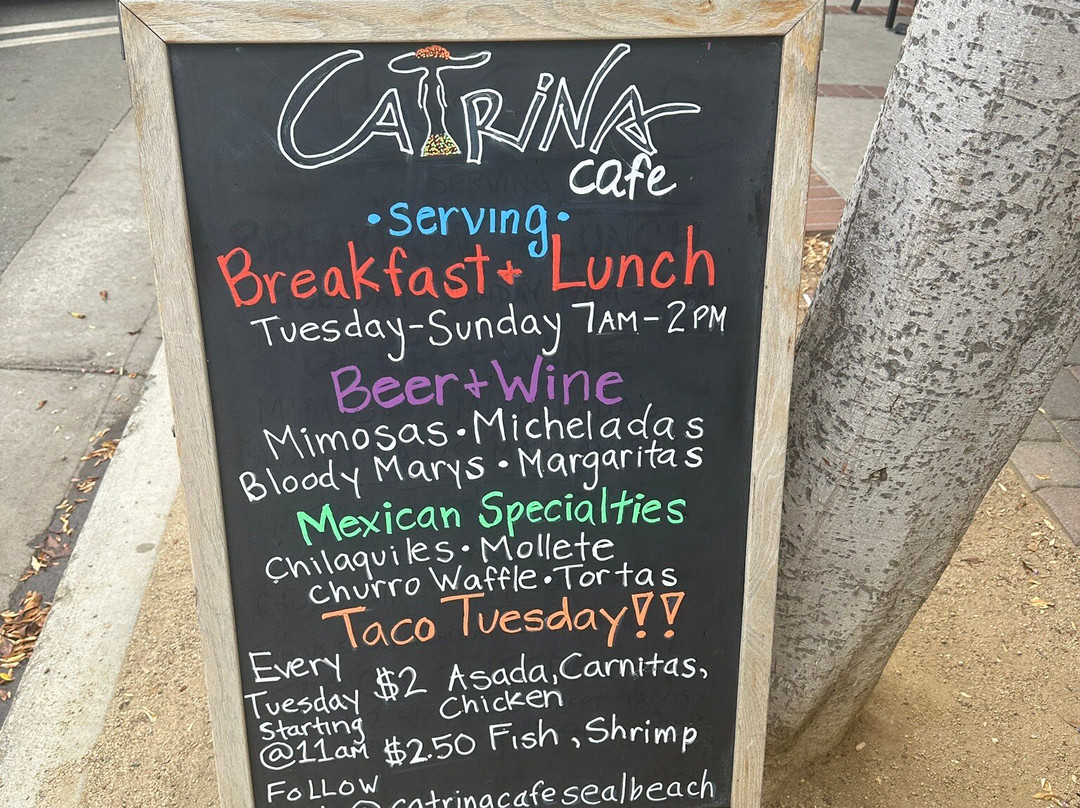 CATRINA
cafe
•serving•
Breakfast + Lunch
Tuesday-Sunday 7AM-2PM
Beer + Wine
Mimosas • Micheladas
Bloody Marys • Margaritas
Mexican Specialties
Chilaquiles • Mollete
Churro Waffle • Tortas
Taco Tuesday!!
Every Tuesday Starting @11am
$2 Asada, Carnitas, Chicken
$2.50 Fish, Shrimp
Follow
@catrinacafesealbeach